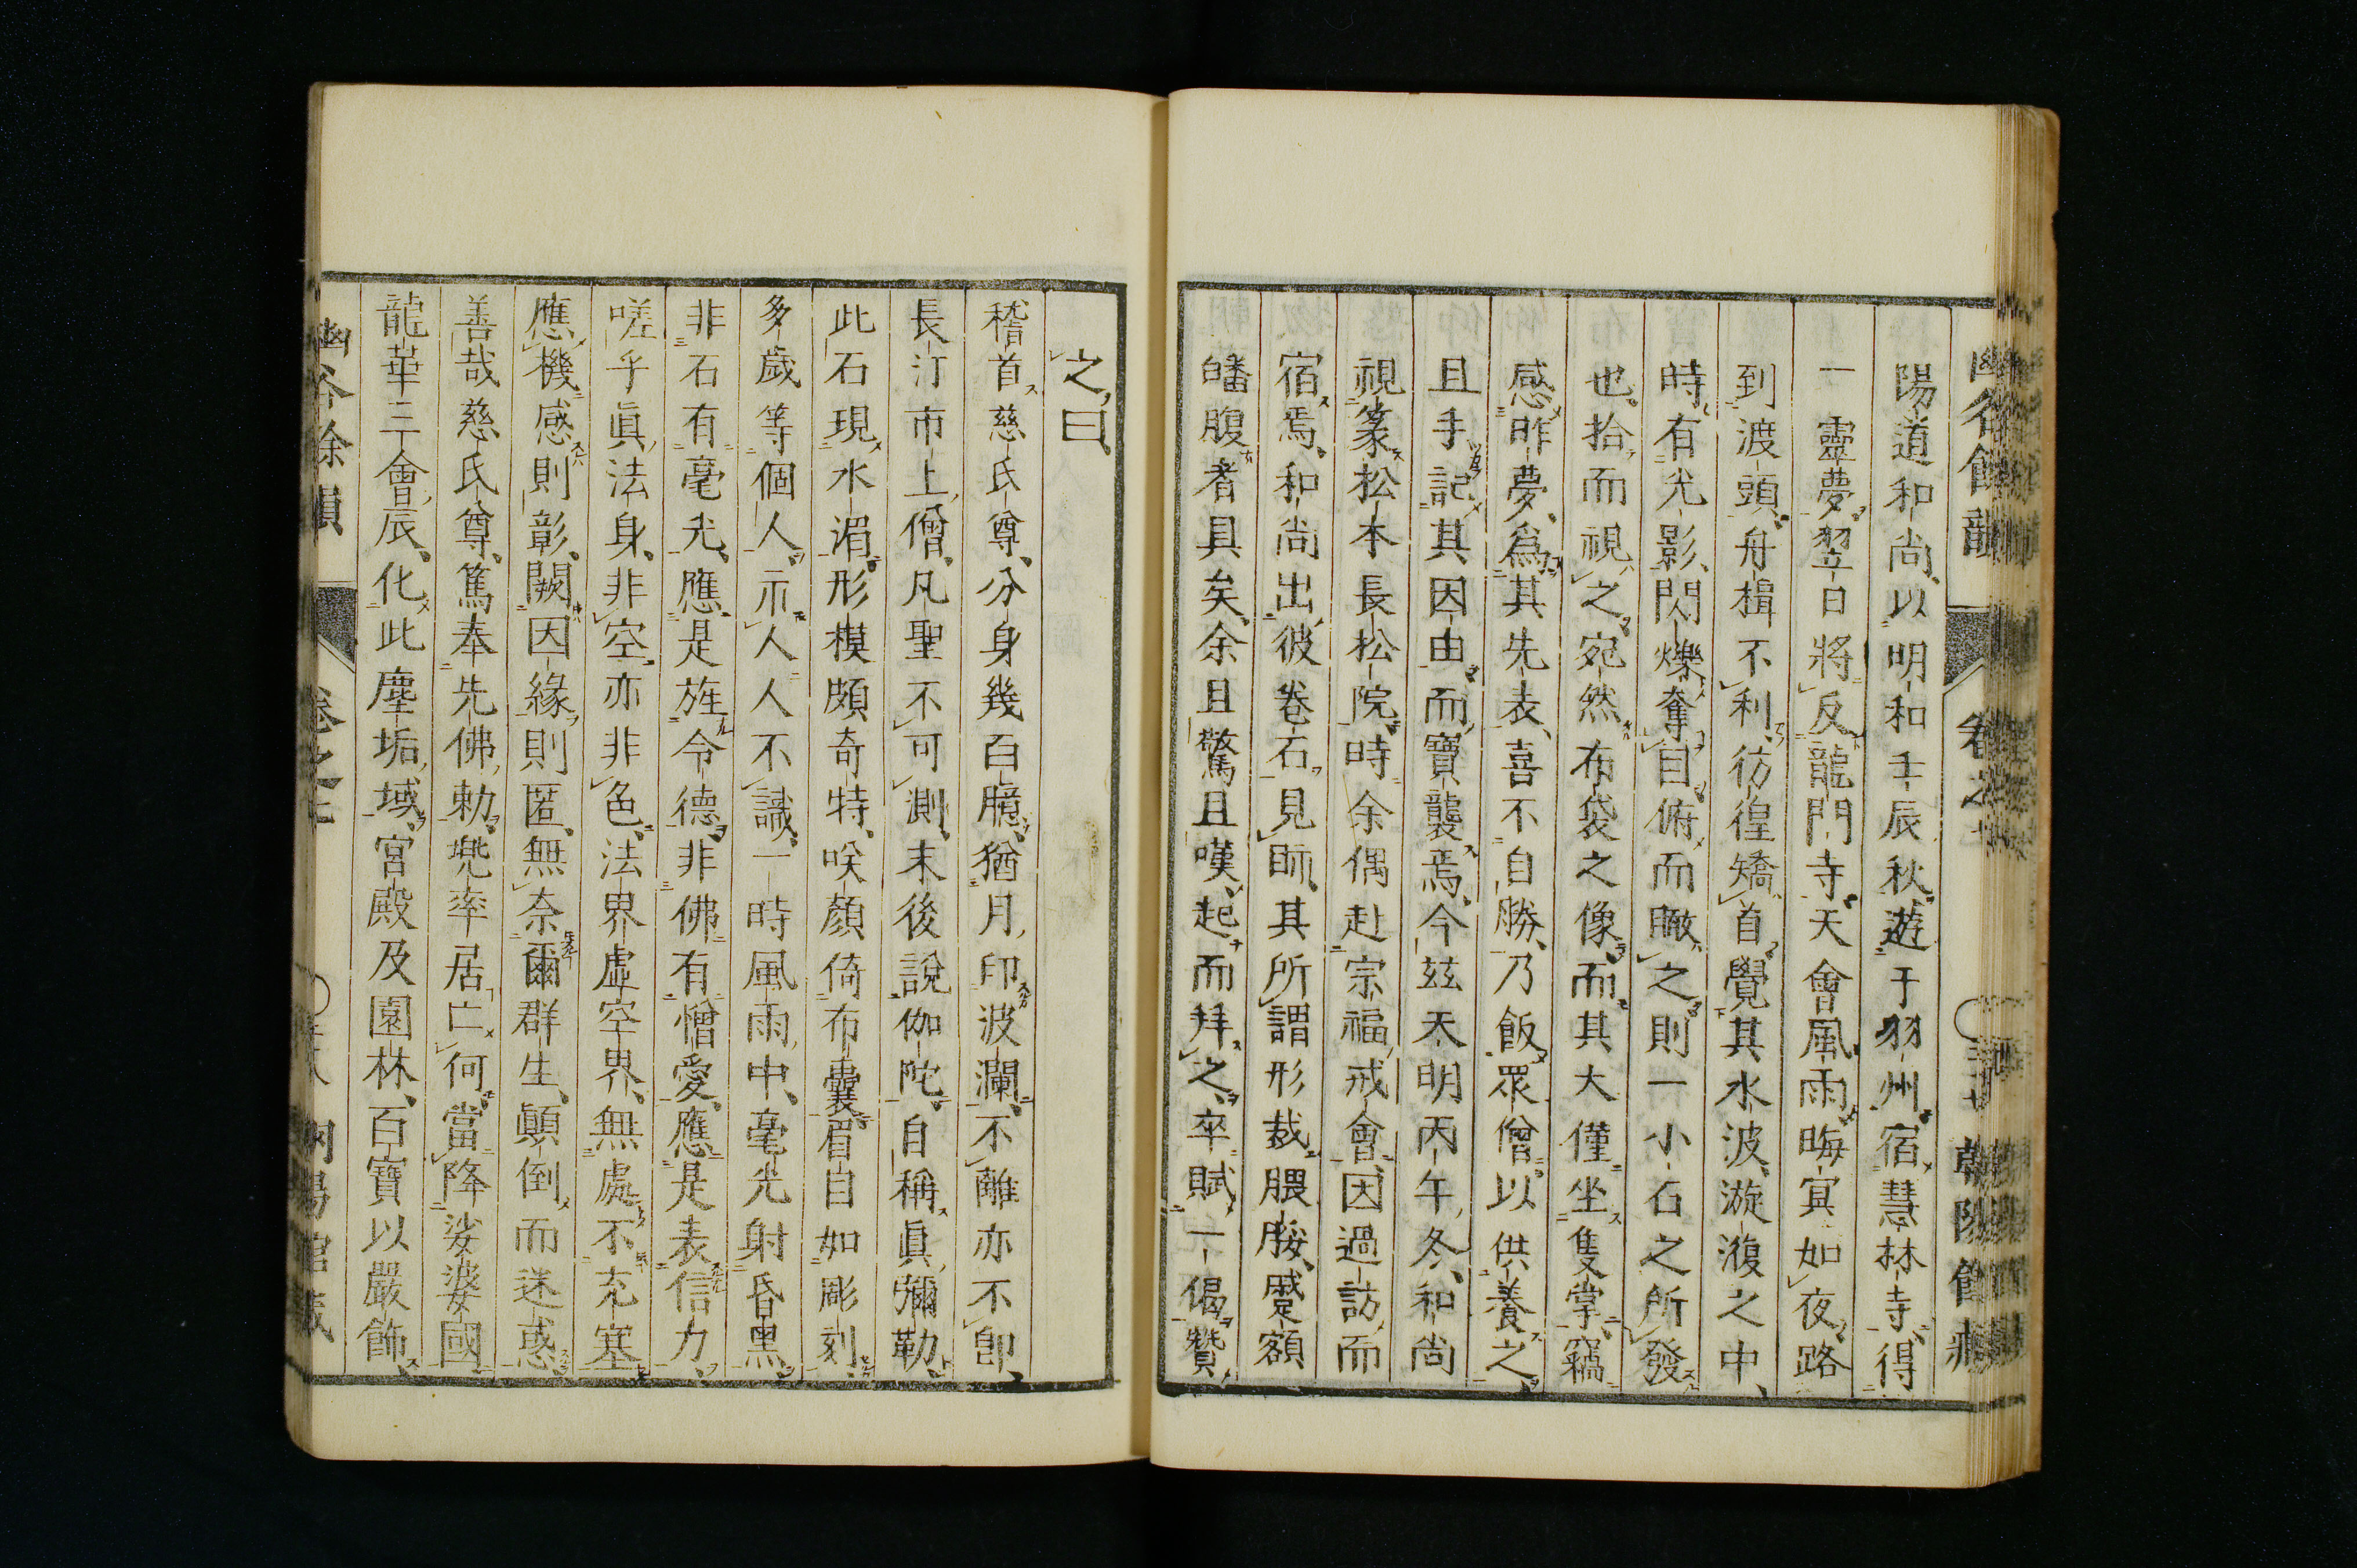 陽道和尚、以明和壬辰秋、遊于羽州、宿慧林寺、得
一靈夢、翌日將反龍門寺、天會風雨晦冥如夜、路
到渡頭、舟楫不利、彷徨矯首、覺其水波、漩澓之中、
時有光影、閃爍奪目、俯而瞰之、則一小石之所發
也、拾而視之、宛然布袋之像、而其大僅坐隻掌、竊
感昨夢、爲其先表、喜不自勝、乃飯眾僧、以供養之、
且手記其因由、而寶襲焉、今茲天明丙午冬、和尚
視篆松本長松院、時余偶赴宗福戒會、因過訪而
宿焉、和尚出彼卷石見眎、其所謂形裁腲脮、蹙額
皤腹者具矣、余且驚且嘆、起而拜之、卒賦一偈贊
之、曰、
稽首慈氏尊、分身幾百臆、猶月印波瀾、不離亦不卽、
長汀市上僧、凡聖不可測、末後說伽陀、自稱眞彌勒、
此石現水湄、形模頗奇特、咲顏倚布囊、眉目如彫刻、
多歲等個人、示人人不識、一時風雨中、毫光射昏黑、
非石有毫光、應是旌令德、非佛有憎愛、應是表信力、
嗟乎眞法身、非空亦非色、法界虛空界、無處不充塞
應機感則彰、闕因緣則匿、無奈爾群生、顚倒而迷惑、
善哉慈氏尊、篤奉先佛勅、兜率居亡何、當降娑婆國
龍華三會辰、化此塵垢域、宮殿及園林、百寶以嚴飾、
幽谷餘韻 卷之七 朝陽館藏